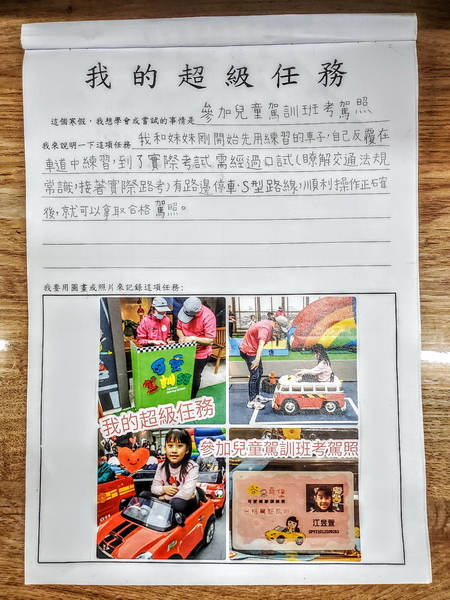 我的超級任務
這個寒假，我想學會或嘗試的事情是 參加兒童駕訓班考駕照
我來說明一下這項任務 我和妹妹剛開始先用練習的車子，自己反覆在
車道中練習，到了實際考試，需經過口試(瞭解交通法規
常識，接著實際路考)有路邊停車、S型路線，順利操作正確
後，就可以拿取合格駕照。
我要用圖畫或照片來記錄這項任務:
我的超級任務
參加兒童駕訓班考駕照
江昱萱